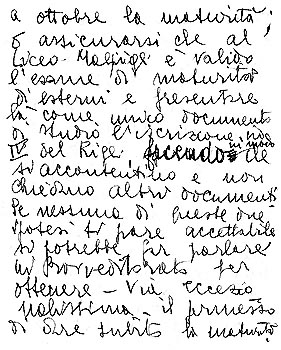 a ottobre la maturità;
o assicurarsi che al
liceo Malpighi è valido
l'esame di maturità
di esterni e presentare
là come unico documento
di studio l'iscrizione
IV del Righi facendo in modo che
si accontentino e non
chiedano altri documenti
Se nessuna di queste due
ipotesi ti pare accettabile
si potrebbe far parlare
in Provveditorato per
ottenere - via eccezio
nalissima - il permesso
di dare subito la maturità